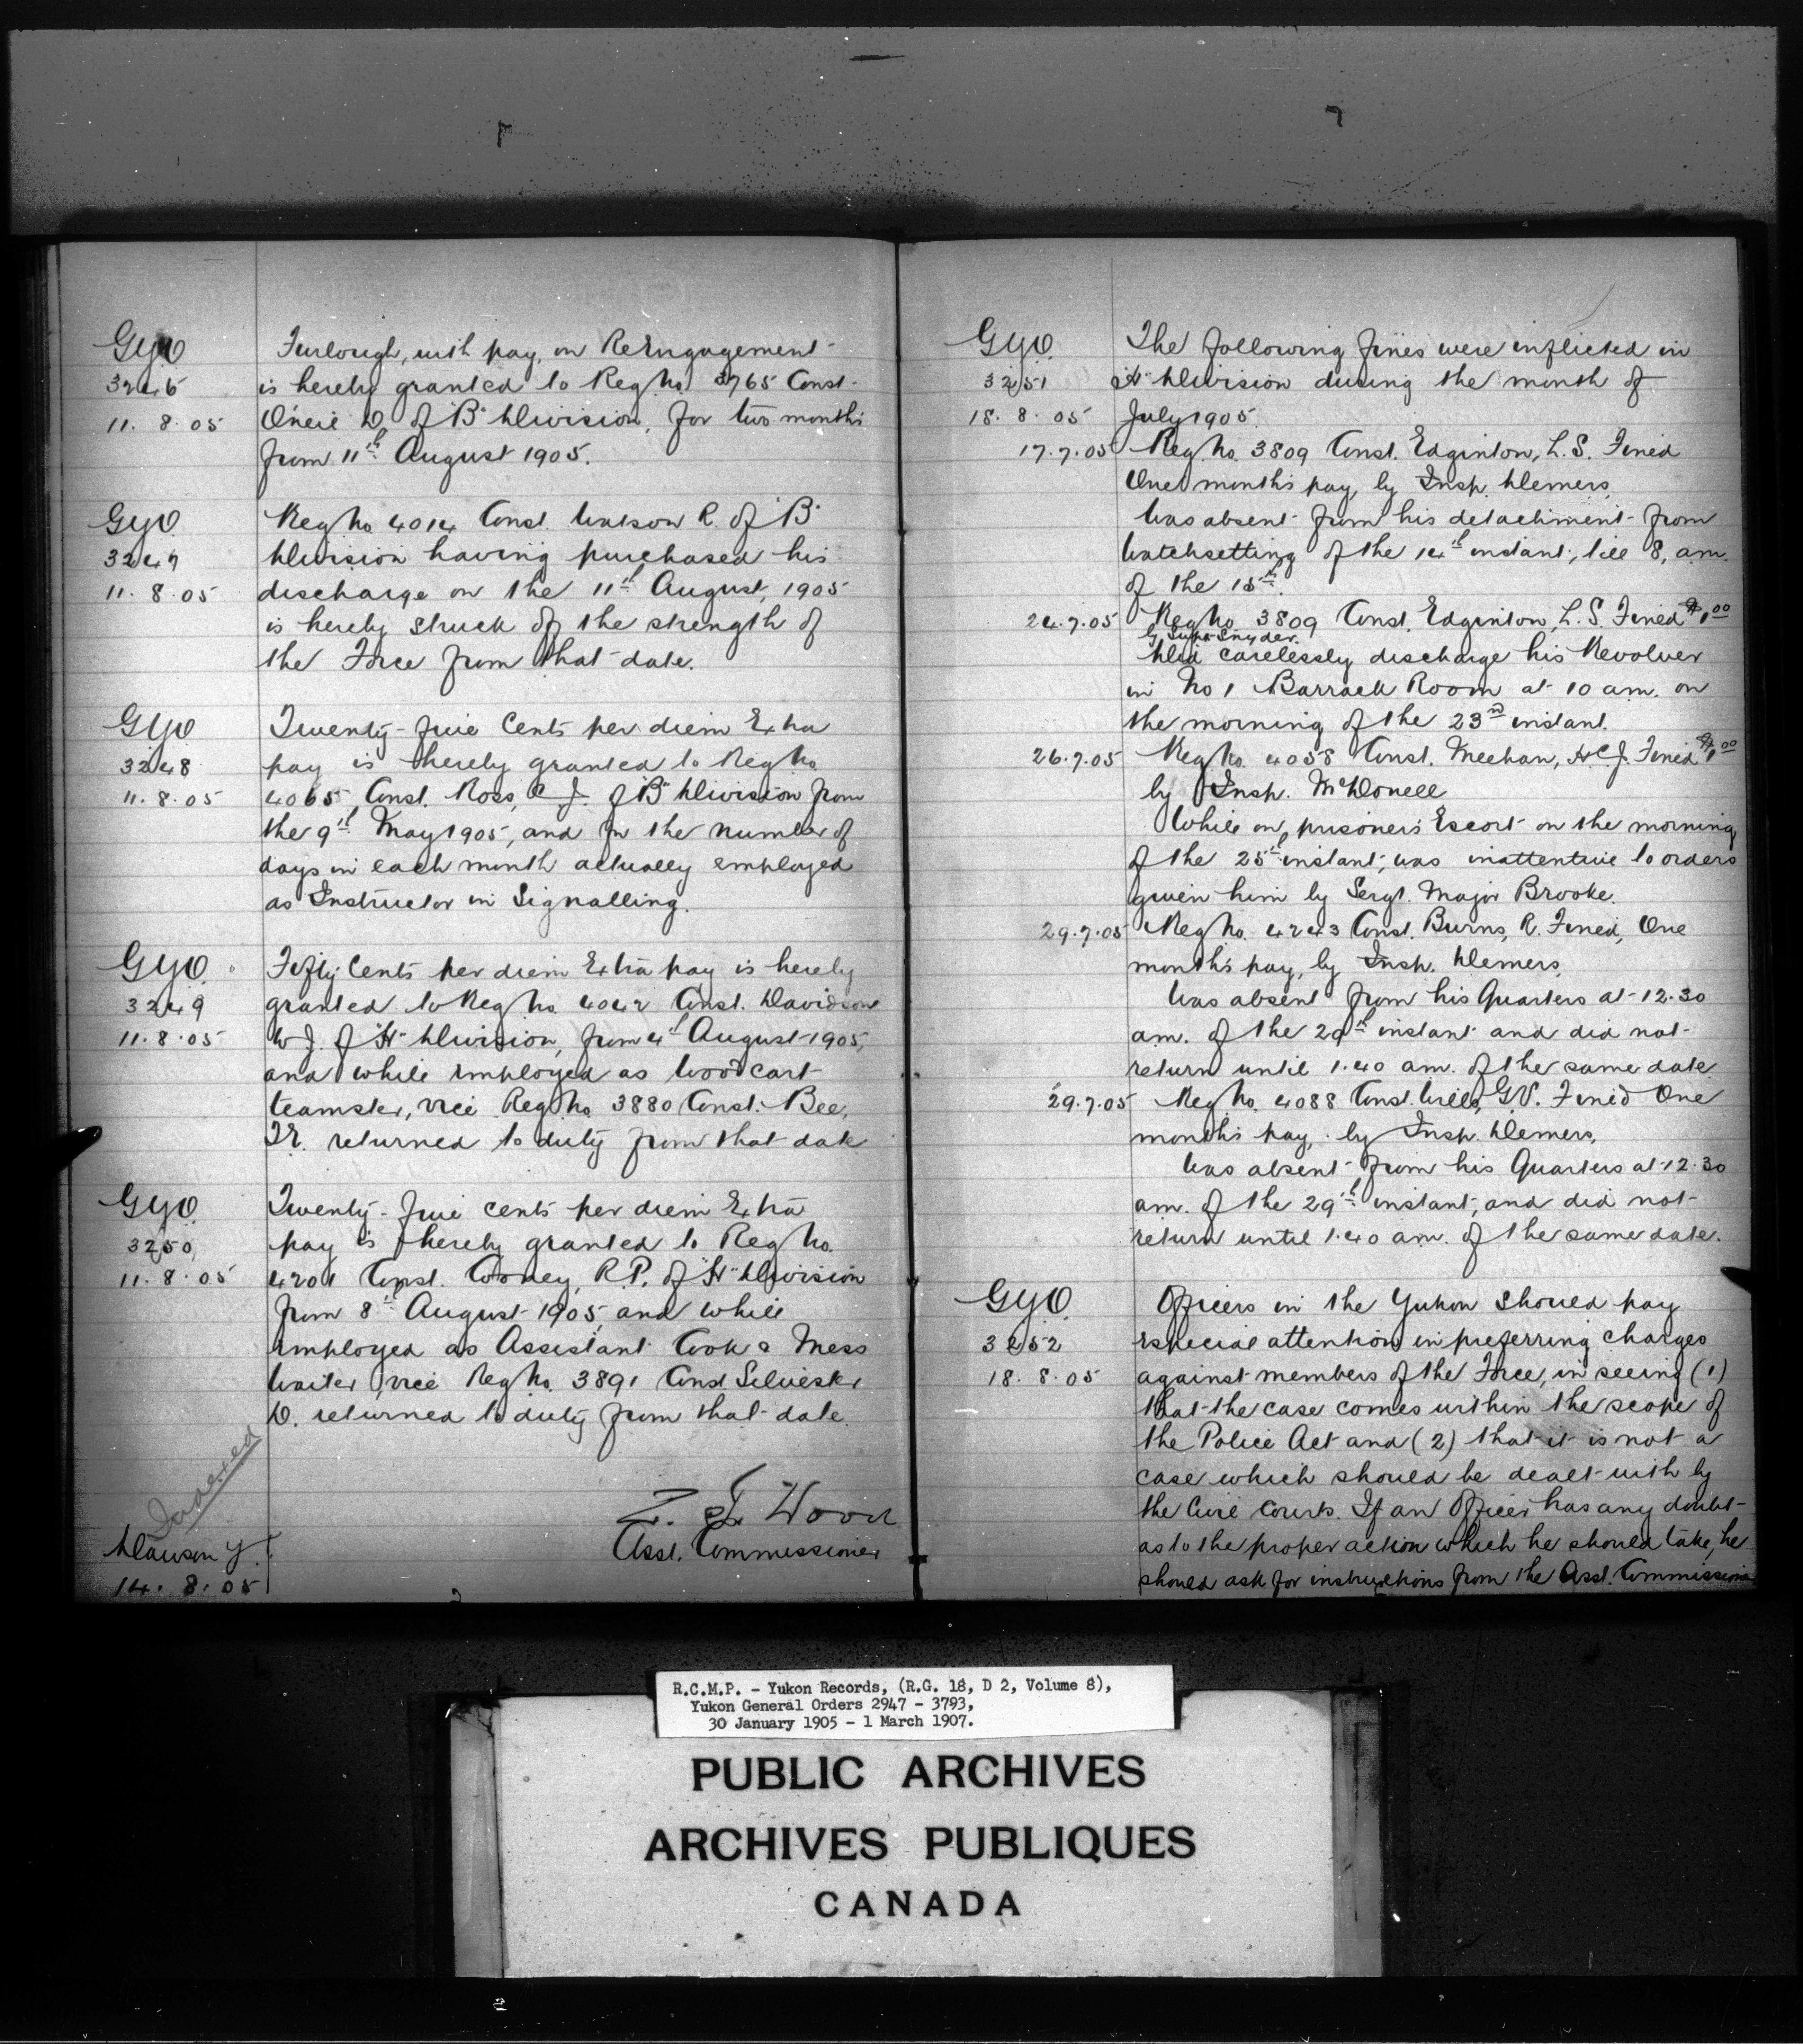 GYO
3246
11. 8. 05
Furlough, with pay, on ReEngagement
is hereby granted to Reg No 3765 Const.
O'neil D. of "B" Division, for two months
from 11th August 1905.
GYO
3247
11. 8. 05
Reg No 4014 Const. Watson R. of "B"
Division having purchased his
discharge on the 11th August, 1905
is hereby struck off the strength of
the Force from that date.
GYO
3248
11. 8. 05
Twenty-five Cents per diem Extra
pay is hereby granted to Reg No.
4065 Const. Ross, J. of "B" Division from
the 9th May 1905, and for the number of
days in each month actually employed
as Instructor in Signalling.
GYO.
3249
11. 8. 05
Fifty Cents per diem Extra pay is hereby
granted to Reg No. 4042 Const. Davidson
W J. of "H" Division, from 4th August 1905,
and while employed as Wood cart
teamster, vice Reg No. 3880 Const. Bee,
T.E. returned to duty from that date
GYO.
3250
11. 8. 05
Twenty-five cents per diem Extra
pay is hereby granted to Reg No.
4201 Const. Cooney, R.P. of "H" Division
from 8th August 1905, and while
employed as Assistant Cook & Mess
Waiter vice Reg No. 3891 Const Silvester
D. returned to duty from that date.
Indexed
Z. T. Wood
Asst. Commissioner
Dawson Y.T.
14. 8. 05
GYO.
3251
18. 8. 05
The following fines were inflicted in
"H" Division during the month of
July 1905.
17.7.05 Reg. No. 3809 Const. Edginton, L.S. Fined
One months pay, by Insp. Demers.
Was absent from his detachment from
Watchsetting of the 14th instant, till 8, am.
of the 15th.
24.7.05 Reg No. 3809 Const. Edginton, L.S. Fined $1.00
by Supt Snyder.
Did carelessly discharge his Revolver
in No 1 Barrack Room at 10 am. on
the morning of the 23rd instant.
26.7.05 Reg No. 4058 Const. Meehan, H.C.J. Fined $1.00
by Insp. McDonell
While on prisoners Escort on the morning
of the 25th instant, was inattentive to orders
given him by Sergt. Major Brooke.
29.7.05 Reg No. 4243 Const. Burns, R. Fined, One
months pay, by Insp. Demers.
Was absent from his Quarters at 12.30
am. of the 29th instant and did not
return until 1.40 am. of the same date
29.7.05 Reg No. 4088 Const. Wills, G.V. Fined One
months pay, by Insp. Demers,
Was absent from his Quarters at 12.30
am. of the 29th instant, and did not
return until 1.40 am. of the same date.
GYO
3252
18. 8. 05
Officers in the Yukon should pay
especial attention in preferring charges
against members of the Force, in seeing (1)
that the case comes within the scope of
the Police Act and (2) that it is not a
case which should be dealt with by
the Civil Courts. If an Officer has any doubt
as to the proper action which he should take, he
should ask for instructions from the Asst. Commissioner
R.C.M.P. - Yukon Records, (R.G. 18, D 2, Volume 8),
Yukon General Orders 2947 - 3793,
30 January 1905 - 1 March 1907.
PUBLIC ARCHIVES
ARCHIVES PUBLIQUES
CANADA